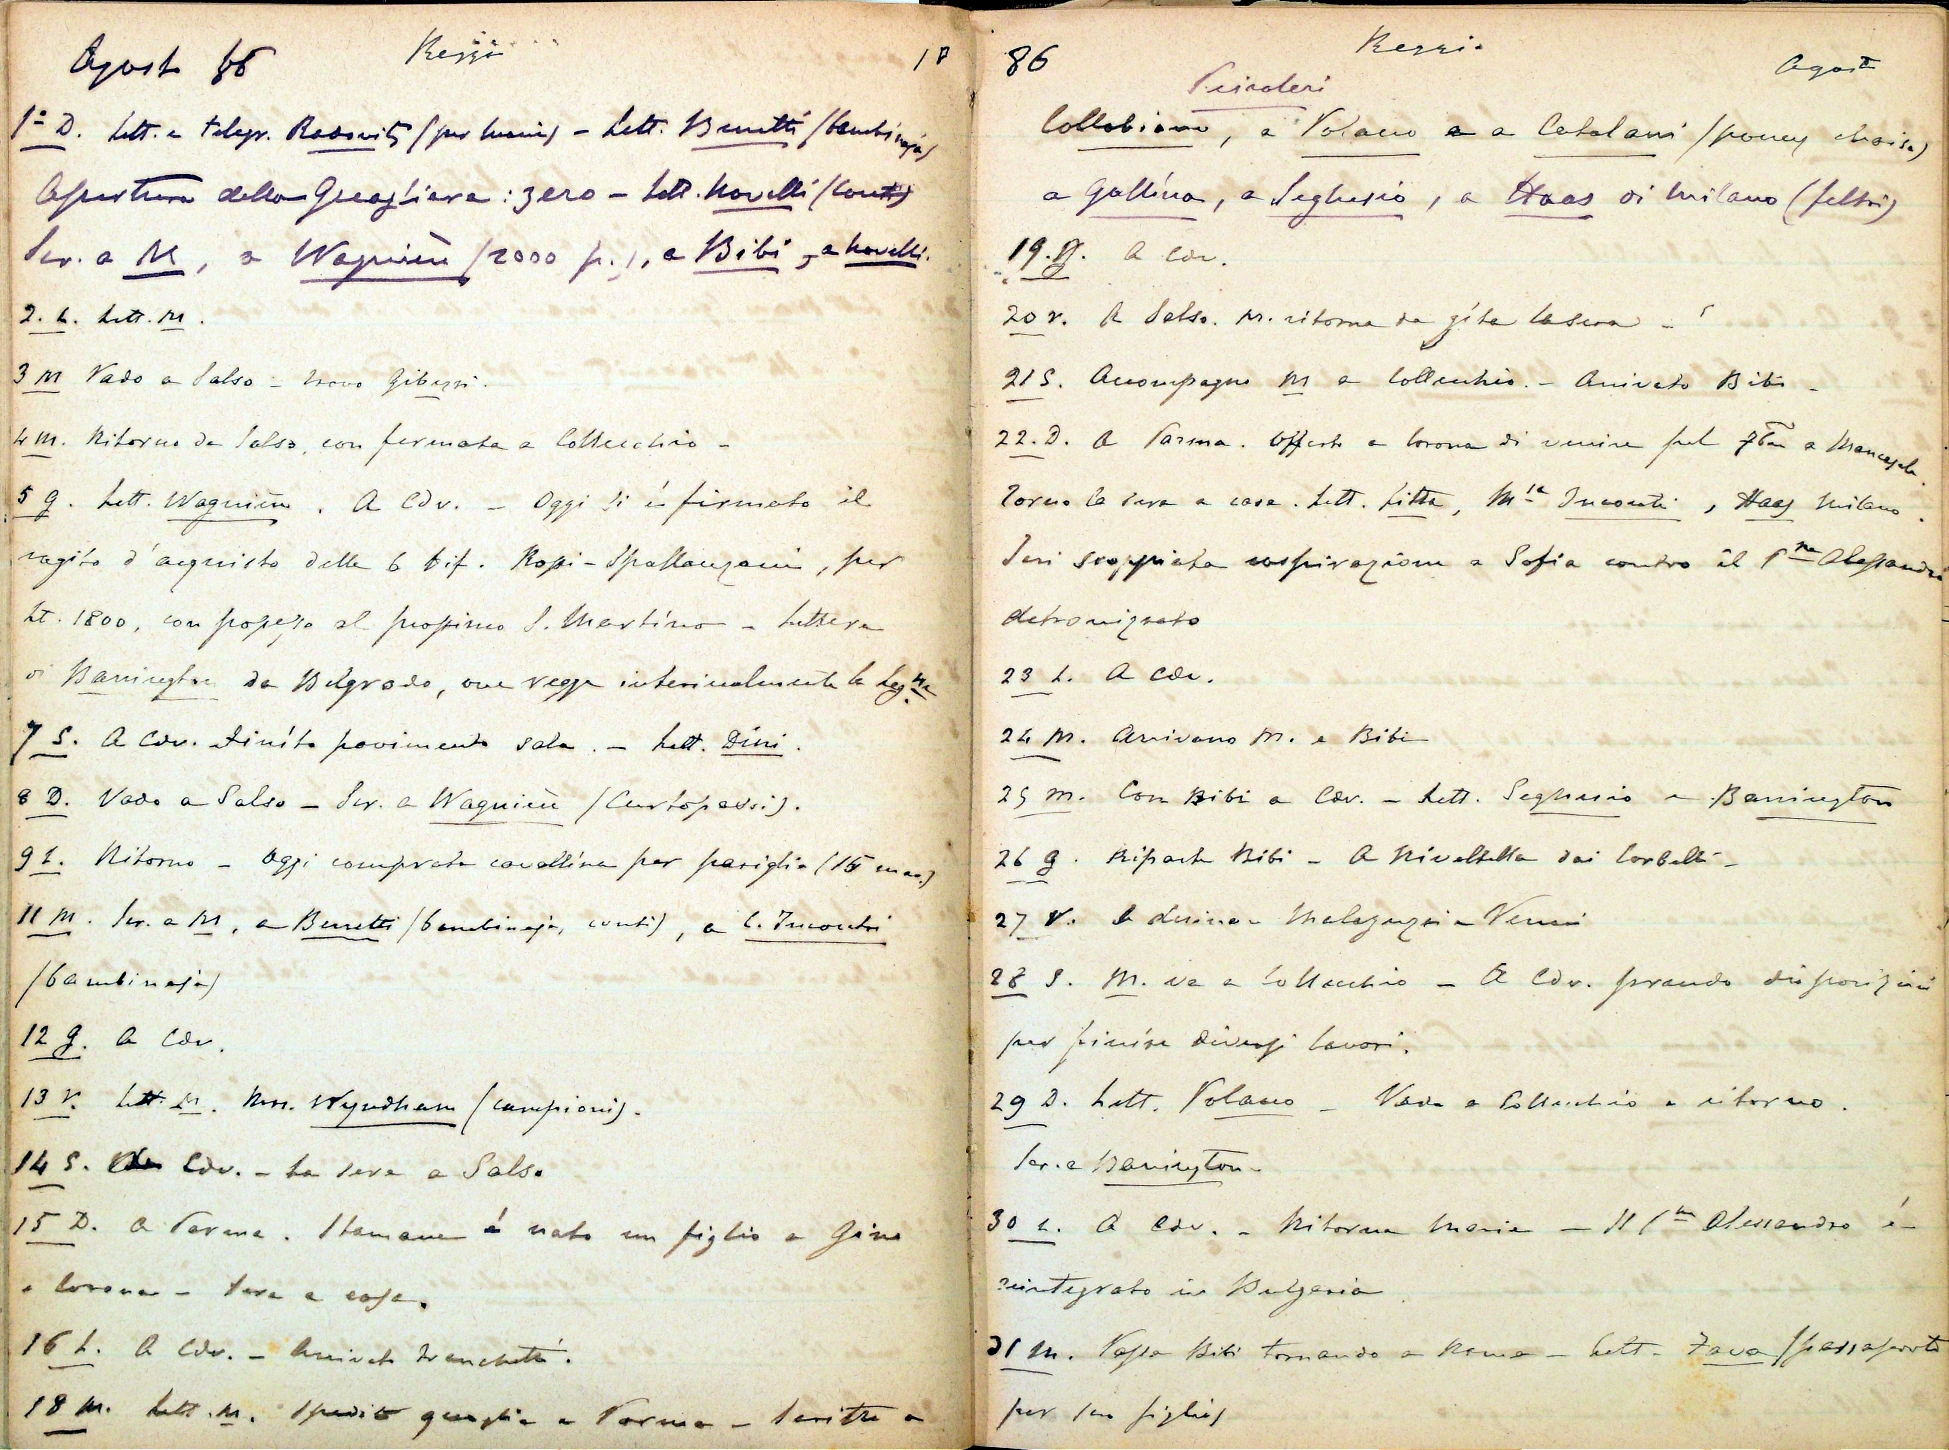 Agosto 86 Reggio 18
1° D. Lett. e telegr. Radovitz (per Maria) – Lett. Benetti (bambinaja)
Apertura della Quagliara : zero – Lett. Novelli (Conti)
Scr. a M, a Wagnière (2000 fr.), a Bibi, a Novelli.
2. L. Lett. M.
3 M Vado a Salso – trovo Gibezzi.
4 M. Ritorno da Salso, con fermata a Collecchio –
5 G. Lett. Wagnière. A Cdv. – Oggi si è firmato il
rogito d'acquisto delle 6 bif. Rossi-Spallanzani, per
Lt. 1800, con possesso al prossimo S. Martino – Lettera
di Barrington da Belgrado, ove regge interinalmente la Legne
7 S. A Cdv. Finito pavimento sala. – Lett. Dini.
8 D. Vado a Salso – Scr. a Wagnière (Curtopassi).
9 L. Ritorno – Oggi comprata cavallina per pariglia (15 mar.)
11 M. Scr. a M, a Benetti (bambinaja, conti), a C. Incontri
(bambinaja)
12 G. A Cdv.
13 V. Lett. M. Mrs. Wyndham (campioni).
14 S. Cdv. – La sera a Salso
15 D. A Parma. Stamane è nato un figlio a Gino
e Corona – Sera a casa.
16 L. A Cdv. – Arrivato Franchetti.
18 M. Lett. M. Spedito quaglie a Parma – Scritto a
86 Reggio Agosto
Collobiano, a Polacco e a Catalani (poney chaise)
a Gallina, a Seghesio, a Haas di Milano (feltri)
19. G. A Cdv.
20 V. A Salso. M. ritorna da gita la sera –
21 S. Accompagno M a Collecchio. – Arrivato Bibi –
22. D. A Parma. Offerto a Corona di venire pel 7bre a Mancasale.
Torno la sera a casa. Lett. Litta, Mse Incontri, Haas Milano.
Ieri scoppiata cospirazione a Sofia contro il Pne Alessandro
detronizzato
23 L. A Cdv.
24 M. Arrivano M. e Bibi
25 M. Con Bibi a Cdv. – Lett. Seghesio e Barrington
26 G. Riparte Bibi – A Rivaltella dai Corbelli –
27 V. A desinare Malaguzzi e Venini
28 S. M. va a Collecchio – A Cdv. prendo disposizioni
per finire diversi lavori.
29 D. Lett. Polacco – Vado a Collecchio e ritorno.
Scr. a Barrington –
30 L. A Cdv. – Ritorna Maria – Il Pne Alessandro è
reintegrato in Bulgaria.
31 M. Passa Bibi tornando a Roma – Lett. Fava (passaporto
per suo figlio)